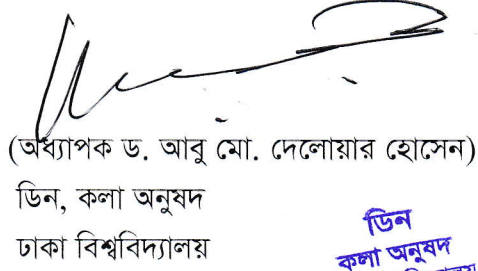 (অধ্যাপক ড. আবু মো. দেলোয়ার হোসেন)
ডিন, কলা অনুষদ
ঢাকা বিশ্ববিদ্যালয়
ডিন
কলা অনুষদ